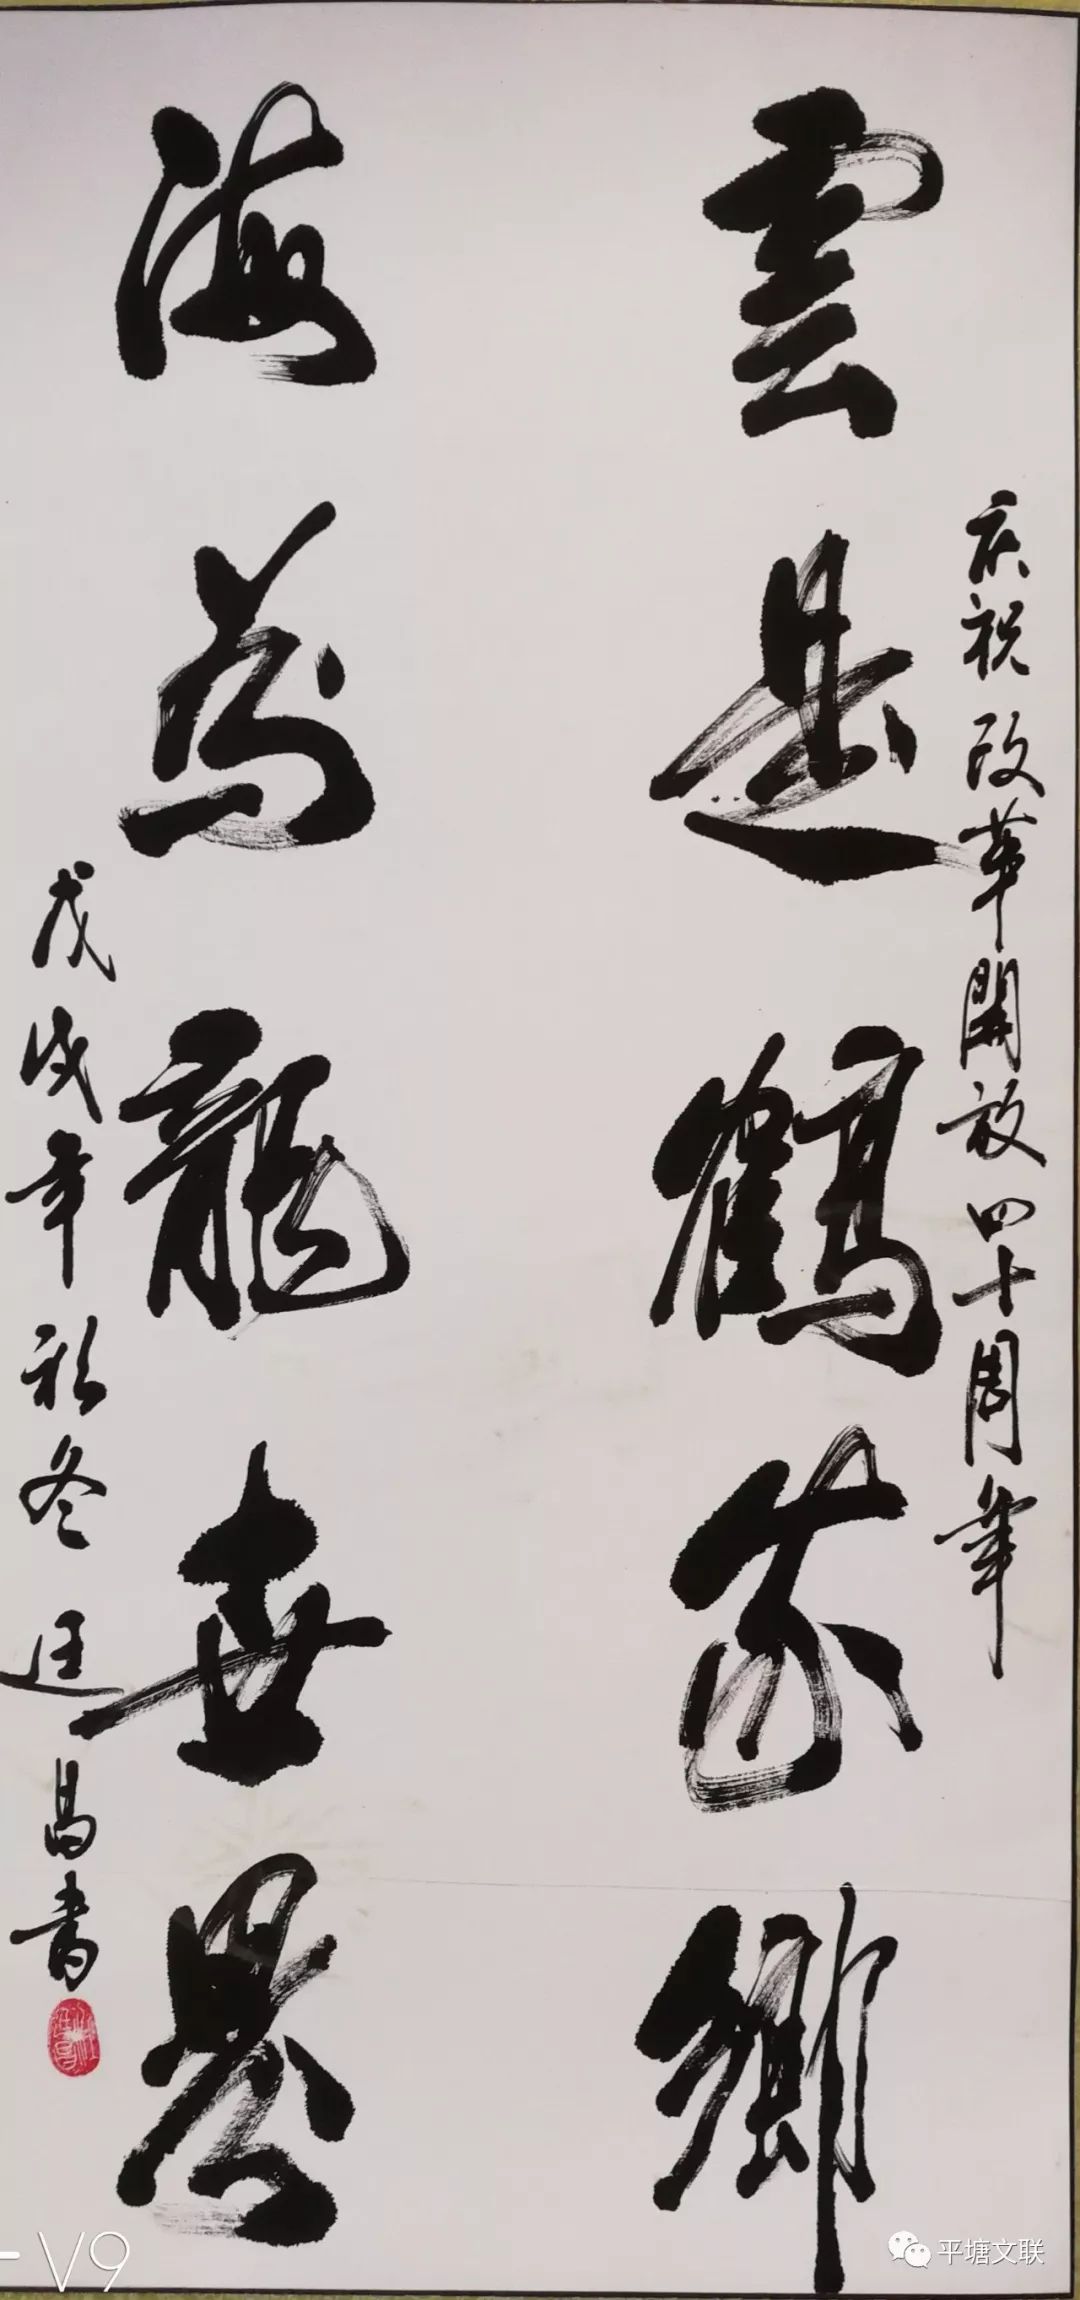 庆祝改革開放四十周年
雲是鶴家鄉
海為龍世界
戊戌年初冬 廷昌書
平塘文联
V9